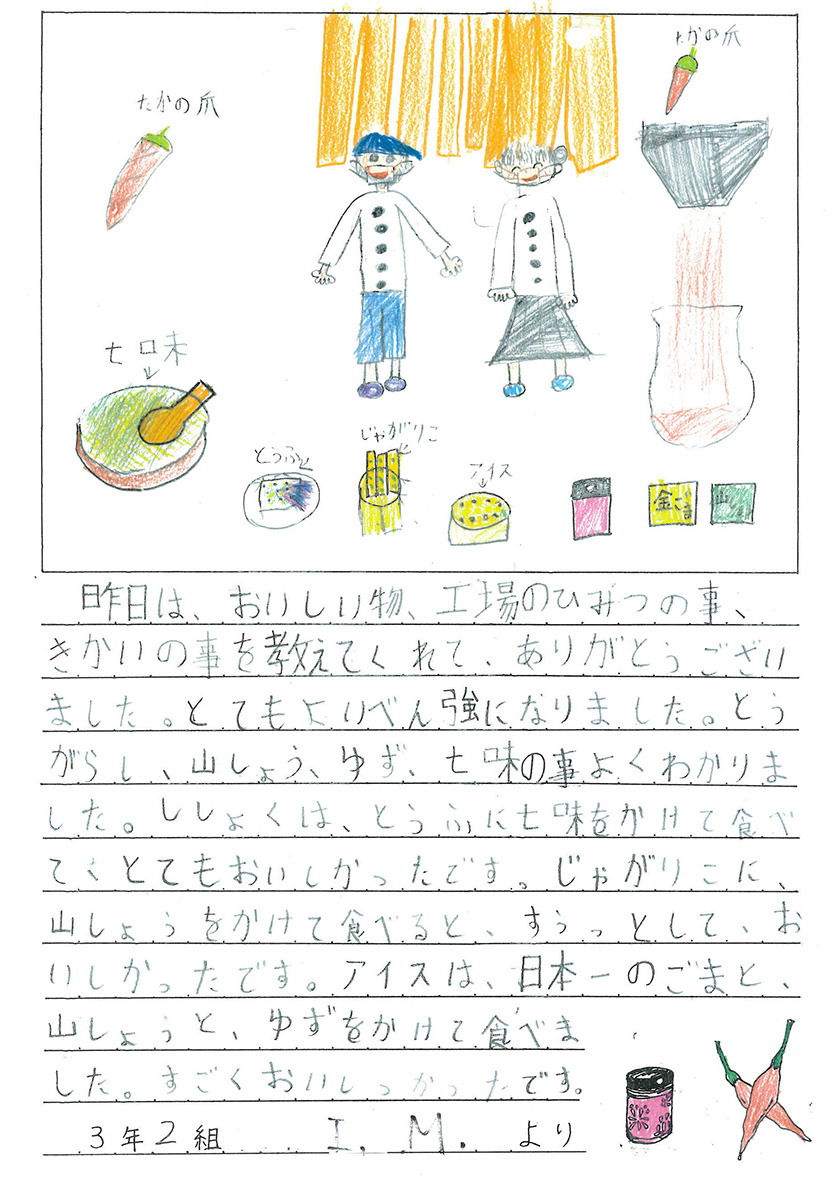 たかの爪
たかの爪
七口未
とうふ
じゃがりこ
アイス
金ごま
昨日は、おいしい物、工場のひみつの事、
きかいの事を教えてくれて、ありがとうござい
ました。とてもよいべん強になりました。とう
がらし、山しょう、ゆず、七味の事よくわかりま
した。ししょくは、とうふに七味をかけて食べ
てとてもおいしかったです。じゃがりこに、
山しょうをかけて食べると、すうっとして、お
いしかったです。アイスは、日本一のごまと、
山しょうと、ゆずをかけて食べま
した。すごくおいしっかったです。
3年2組 I. M. より